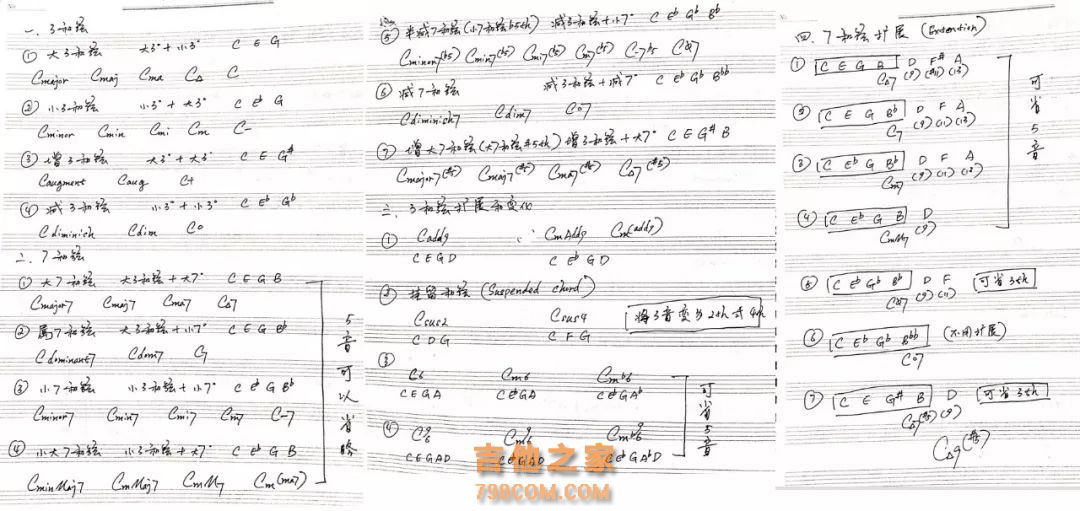 一. 3和弦
① 大3和弦 大3°+小3° C E G
Cmajor Cmaj Cma C△ C
② 小3和弦 小3°+大3° C E♭ G
Cminor Cmin Cmi Cm C-
③ 增3和弦 大3°+大3° C E G#
Caugment Caug C+
④ 减3和弦 小3°+小3° C E♭ G♭
Cdiminish Cdim Co
二. 7和弦
① 大7和弦 大3和弦+大7° C E G B
Cmajor7 Cmaj7 Cma7 C△7
② 属7和弦 大3和弦+小7° C E G B♭
Cdominant7 Cdom7 C7
③ 小7和弦 小3和弦+小7° C E♭ G B♭
Cminor7 Cmin7 Cmi7 Cm7 C-7
④ 小大7和弦 小3和弦+大7° C E♭ G B
CminMaj7 CmMaj7 CmM7 Cm(ma7)
5音可以省略
⑤ 半减7和弦(小7和弦b5th) 减3和弦+小7° C E♭ G♭ B♭
Cminor7(b5) Cmin7(b5) Cmi7(b5) Cm7(b5) C-7b5 Cø7
⑥ 减7和弦 减3和弦+减7° C E♭ G♭ B♭♭
Cdiminish7 Cdim7 Co7
⑦ 增大7和弦(大7和弦#5th) 增3和弦+大7° C E G# B
Cmajor7(#5) Cmaj7(#5) Cma7(#5) C△7(#5)
三. 3和弦扩展和变化
① Cadd9 CmAdd9 Cm(add9)
C E G D C E♭ G D
② 挂留和弦 (Suspended chord)
Csus2 Csus4 将3音变为2th或4th
C D G C F G
③
C6 Cm6 Cmb6
C E G A C E♭ G A C E♭ G A♭
④ C6/9 Cm6/9 Cmb6/9
C E G A D C E♭ G A D C E♭ G A♭ D
可省5音
四. 7和弦扩展 (Extention)
① C E G B D F# A
C△7 (9) (#11) (13)
② C E G B♭ D F A
C7 (9) (11) (13)
③ C E♭ G B♭ D F A
Cm7 (9) (11) (13)
④ C E♭ G B D
CmM7 (9)
可省5音
⑤ C E♭ G♭ B♭ D F 可省3th
Cø7 (9) (11)
⑥ C E♭ G♭ B♭♭ (不用扩展)
Co7
⑦ C E G# B D 可省3th
C△7(#5) (9)
C△9(#5)
吉他之家
798COM.COM